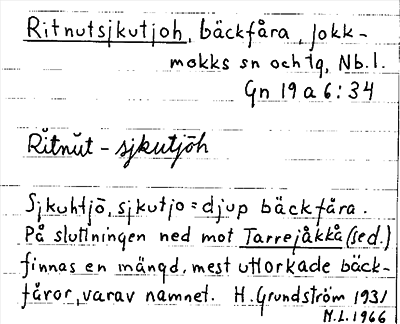 Ritnutsjkutjoh, bäckfåra, Jokk-
mokks sn och tg, Nb.l.
Gn 19 a 6:34
Rĭtnŭt – sjkutjōh
Sjkuhtjō, sjkutjo = djup bäckfåra.
På sluttningen ned mot Tarrejåkkå (sed.)
finnas en mängd, mest uttorkade bäck-
fåror, varav namnet. H. Grundström 1931
M.L. 1966